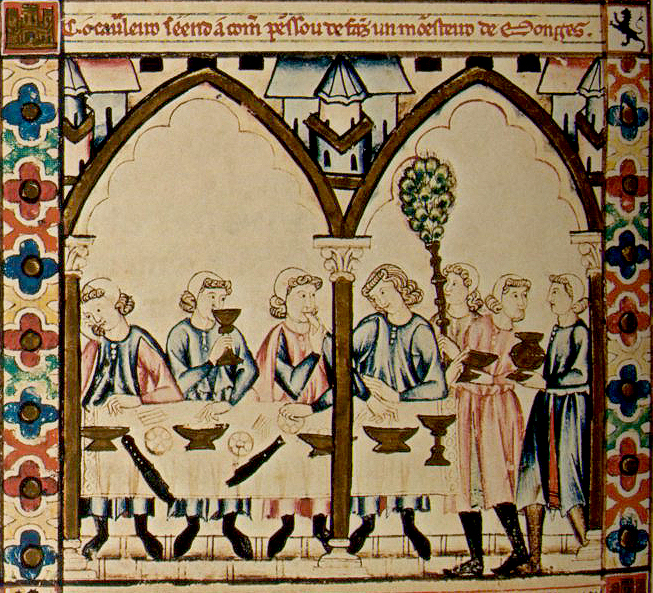 Co caualeiro séend a comer penssou de faz̄ un mōesteiro de Monges.